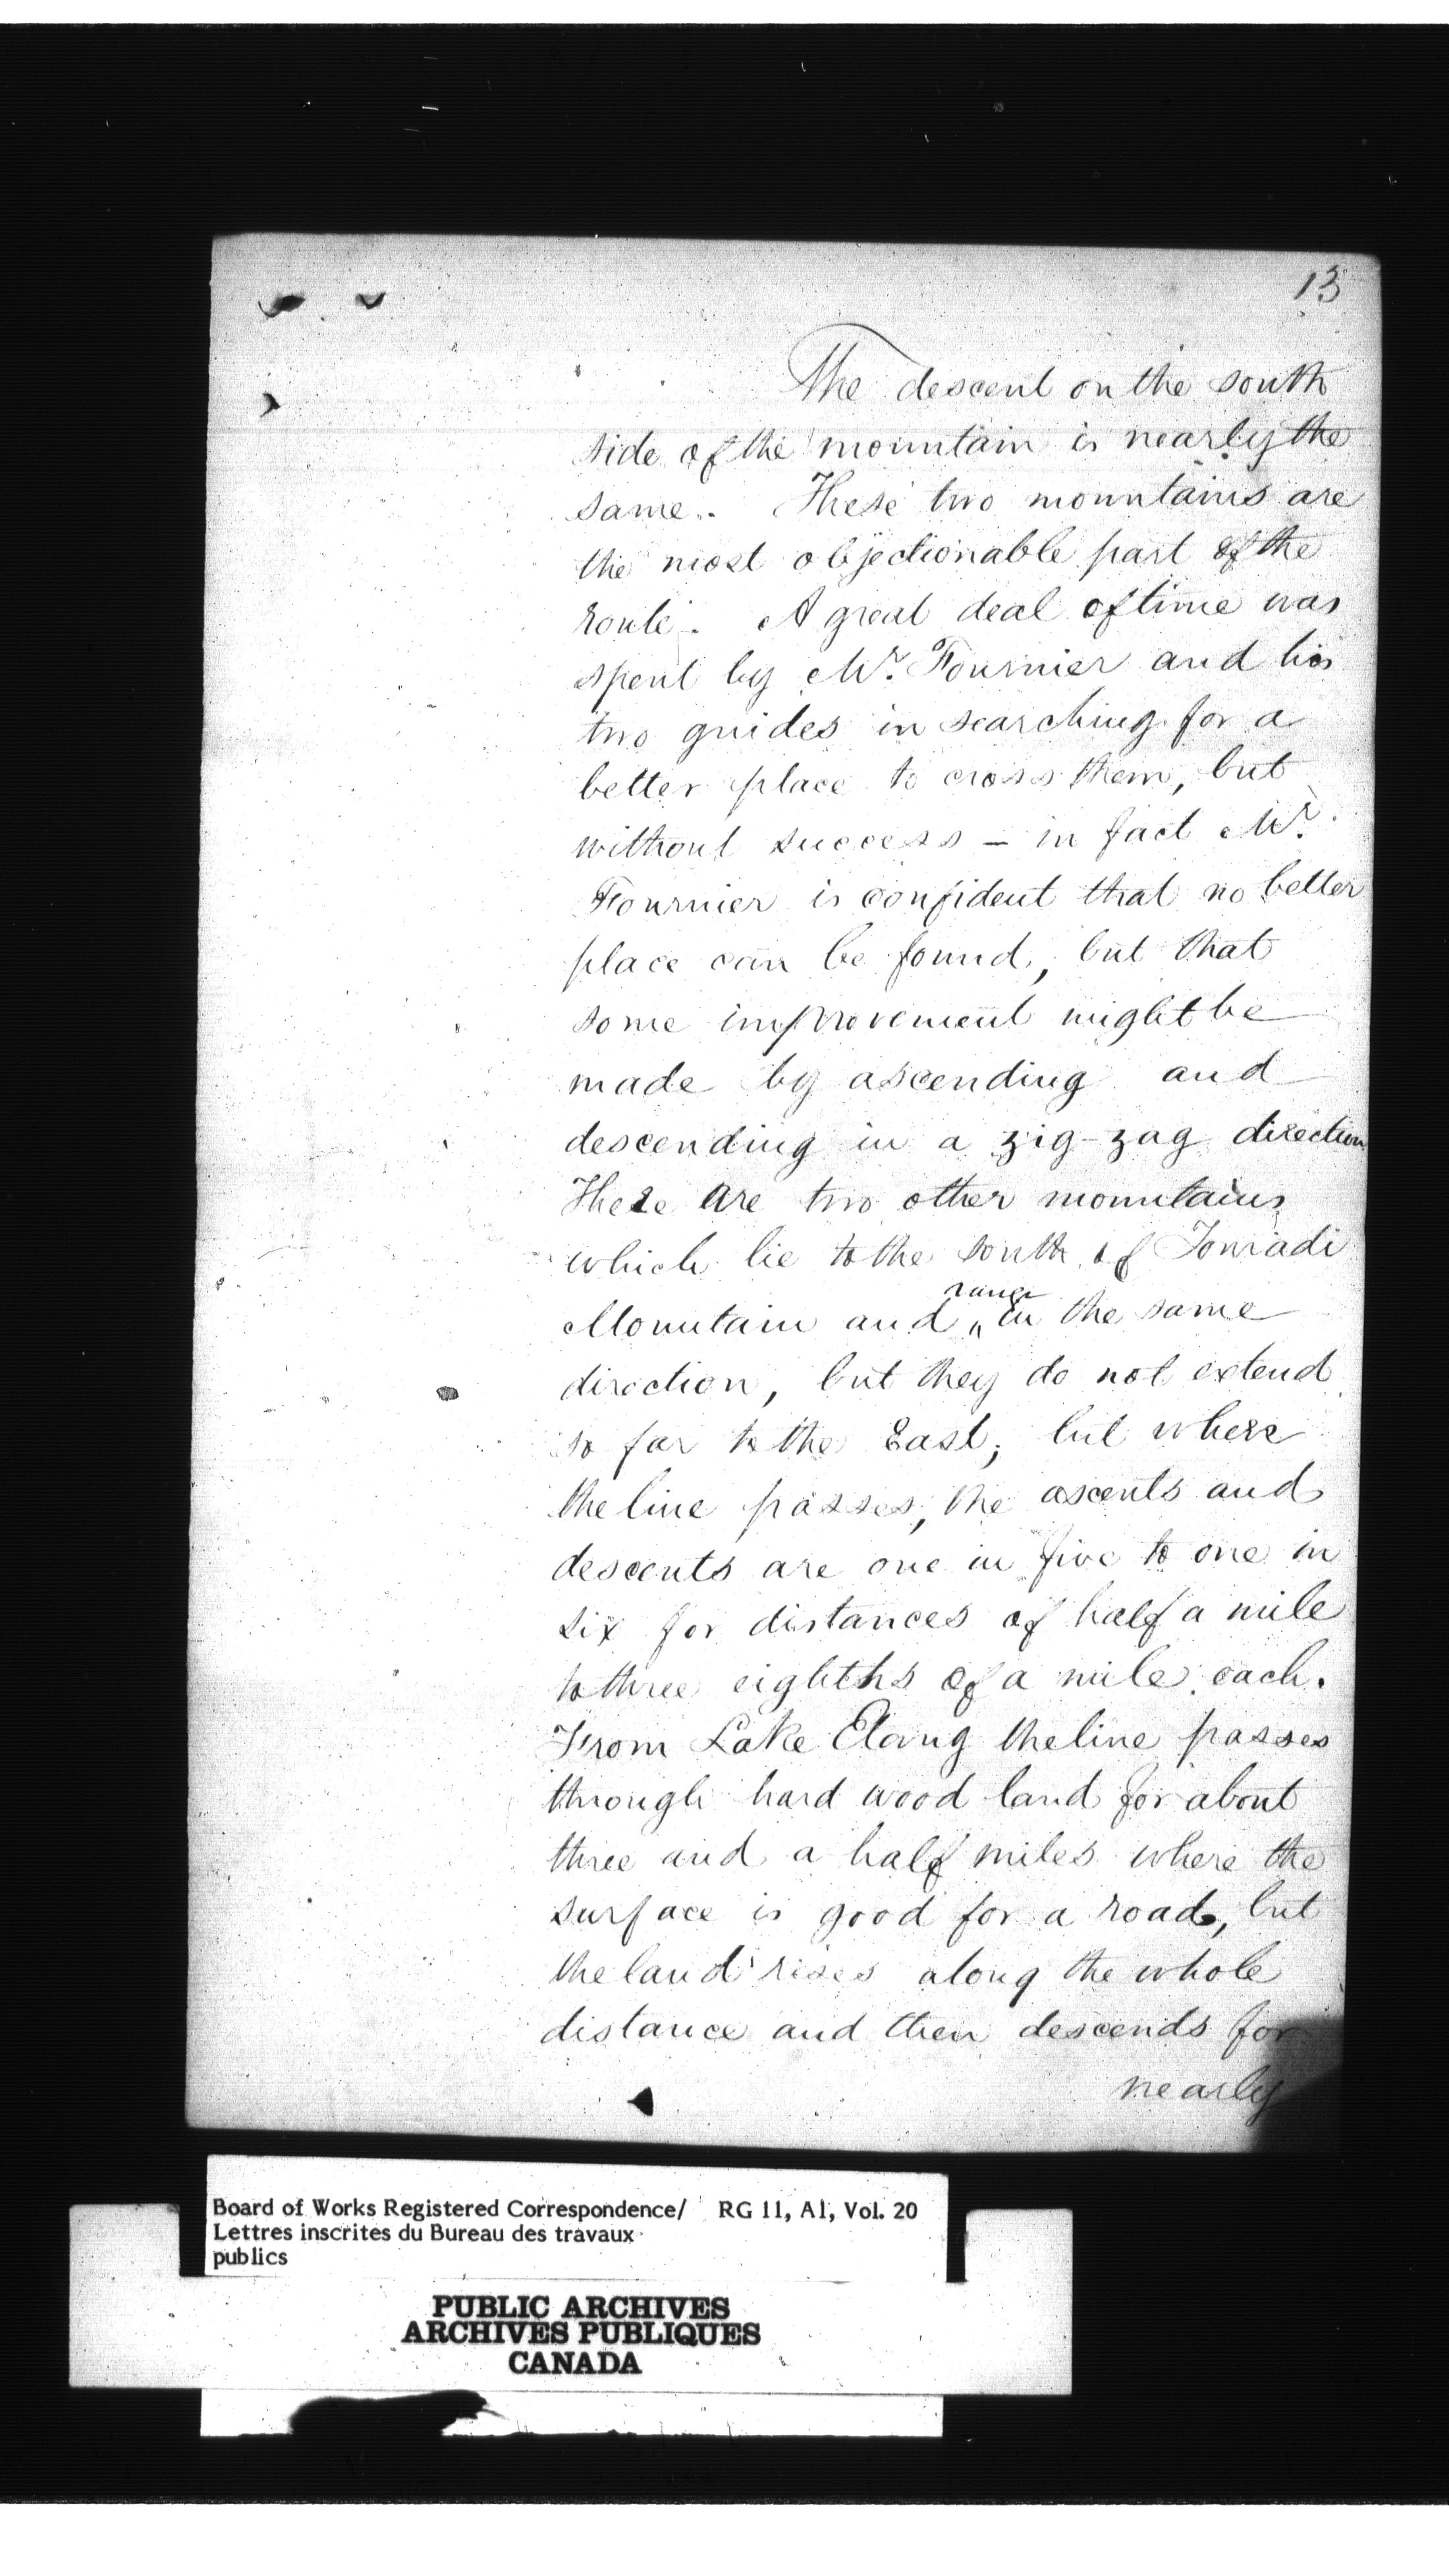 13
The descent on the south
side of the mountain is nearly the
same. These two mountains are
the most objectionable part of the
route. A great deal of time was
spent by Mr. Fournier and his
two guides in searching for a
better place to cross them, but
without success – in fact Mr.
Fournier is confident that no better
place can be found, but that
some improvement might be
made by ascending and
descending in a zig-zag direction
There are two other mountains
which lie to the south of
range
Mountain and „ in the same
direction, but they do not extend
so far to the East; but where
the line passes, the ascents and
descents are one in five to one in
six for distances of half a mile
to three eighths of a mile each.
From Lake Etang the line passes
through hard wood land for about
three and a half miles where the
surface is good for a road, but
the land rises along the whole
distance and then descends for
nearly
Board of Works Registered Correspondence/ RG 11, A1, Vol. 20
Lettres inscrites du Bureau des travaux
publics
PUBLIC ARCHIVES
ARCHIVES PUBLIQUES
CANADA